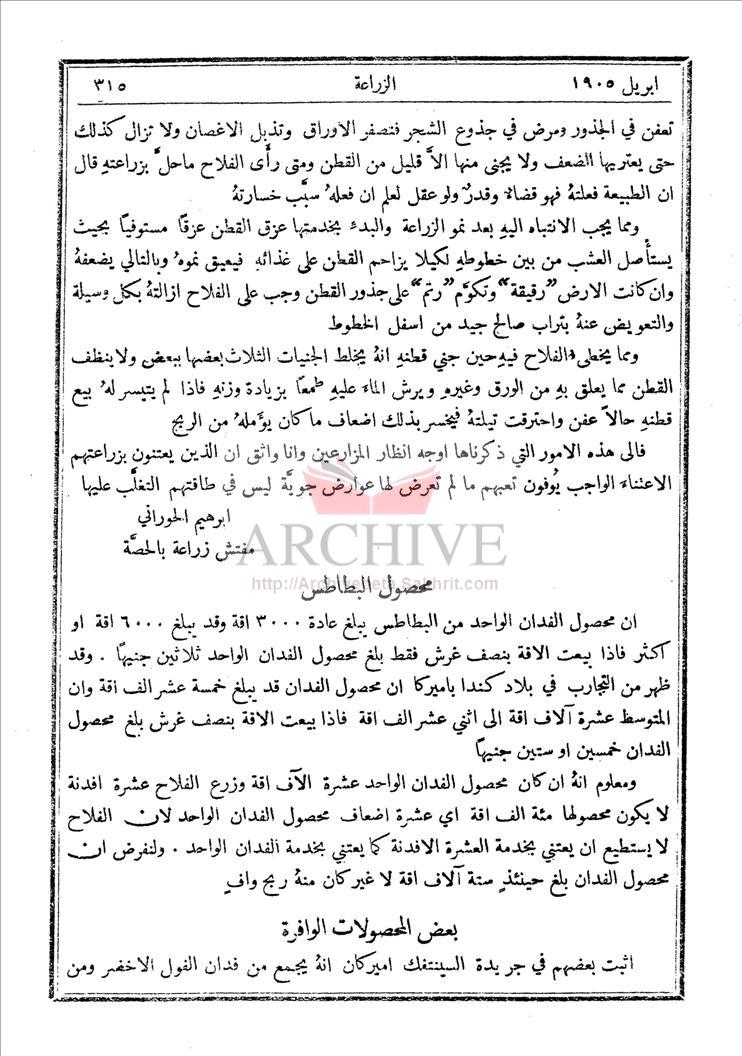 ابريل ١٩٠٥ الزراعة ٣١٥
تعفن في الجذور ومرض في جذوع الشجر فتصفر الاوراق وتذبل الاغصان ولا تزال كذلك
حتى يعتريها الضعف ولا يجنى منها الاَّ قليل من القطن ومتى رأى الفلاح ماحلَّ بزراعتهِ قال
ان الطبيعة فعلتهُ فهو قضاءٌ وقدرٌ ولو عقل لعلم ان فعلهُ سبَّب خسارتهُ
ومما يجب الانتباه اليهِ بعد نمو الزراعة والبدء بخدمتها عزق القطن عزقًا مستوفيًا بحيث
يستأصل العشب من بين خطوطهِ لكيلا يزاحم القطن على غذائهِ فيعيق نموهُ وبالتالي يضعفهُ
وان كانت الارض "رقيقة" وتكوَّم "رتم" على جذور القطن وجب على الفلاح ازالتهُ بكل وسيلة
والتعويض عنهُ بتراب صالح جيد من اسفل الخطوط
ومما يخطىء الفلاح فيهِ حين جني قطنهِ انهُ يخلط الجنيات الثلاث بعضها ببعض ولا ينظف
القطن مما يعلق بهِ من الورق وغيرهِ ويرش الماء عليهِ طمعًا بزيادة وزنهِ فاذا لم يتيسر لهُ بيع
قطنهِ حالاً عفن واحترقت تيلتهُ فيخسر بذلك اضعاف ما كان يؤملهُ من الربح
فالى هذه الامور التي ذكرناها اوجه انظار المزارعين وانا واثق ان الذين يعتنون بزراعتهم
الاعتناء الواجب يُوفون تعبهم ما لم تعرض لها عوارض جويَّة ليس في طاقتهم التغلُّب عليها
ابرهيم الحوراني
مفتش زراعة بالحصَّة
ARCHIVE
http://Archivebeta.Sakhrit.com
محصول البطاطس
ان محصول الفدان الواحد من البطاطس يبلغ عادة ٣٠٠٠ اقة وقد يبلغ ٦٠٠٠ اقة او
اكثر فاذا بيعت الاقة بنصف غرش فقط بلغ محصول الفدان الواحد ثلاثين جنيهًا . وقد
ظهر من التجارب في بلاد كندا باميركا ان محصول الفدان قد يبلغ خمسة عشر الف اقة وان
المتوسط عشرة آلاف اقة الى اثني عشر الف اقة فاذا بيعت الاقة بنصف غرش بلغ محصول
الفدان خمسين او ستين جنيهًا
ومعلوم انهُ ان كان محصول الفدان الواحد عشرة الآف اقة وزرع الفلاح عشرة افدنة
لا يكون محصولها مئة الف اقة اي عشرة اضعاف محصول الفدان الواحد لان الفلاح
لا يستطيع ان يعتني بخدمة العشرة الافدنة كما يعتني بخدمة الفدان الواحد . ولنفرض ان
محصول الفدان بلغ حينئذٍ ستة آلاف اقة لا غير كان منهُ ربح وافٍ
بعض المحصولات الوافرة
اثبت بعضهم في جريدة السينتفك اميركان انهُ يجمع من فدان الفول الاخضر ومن